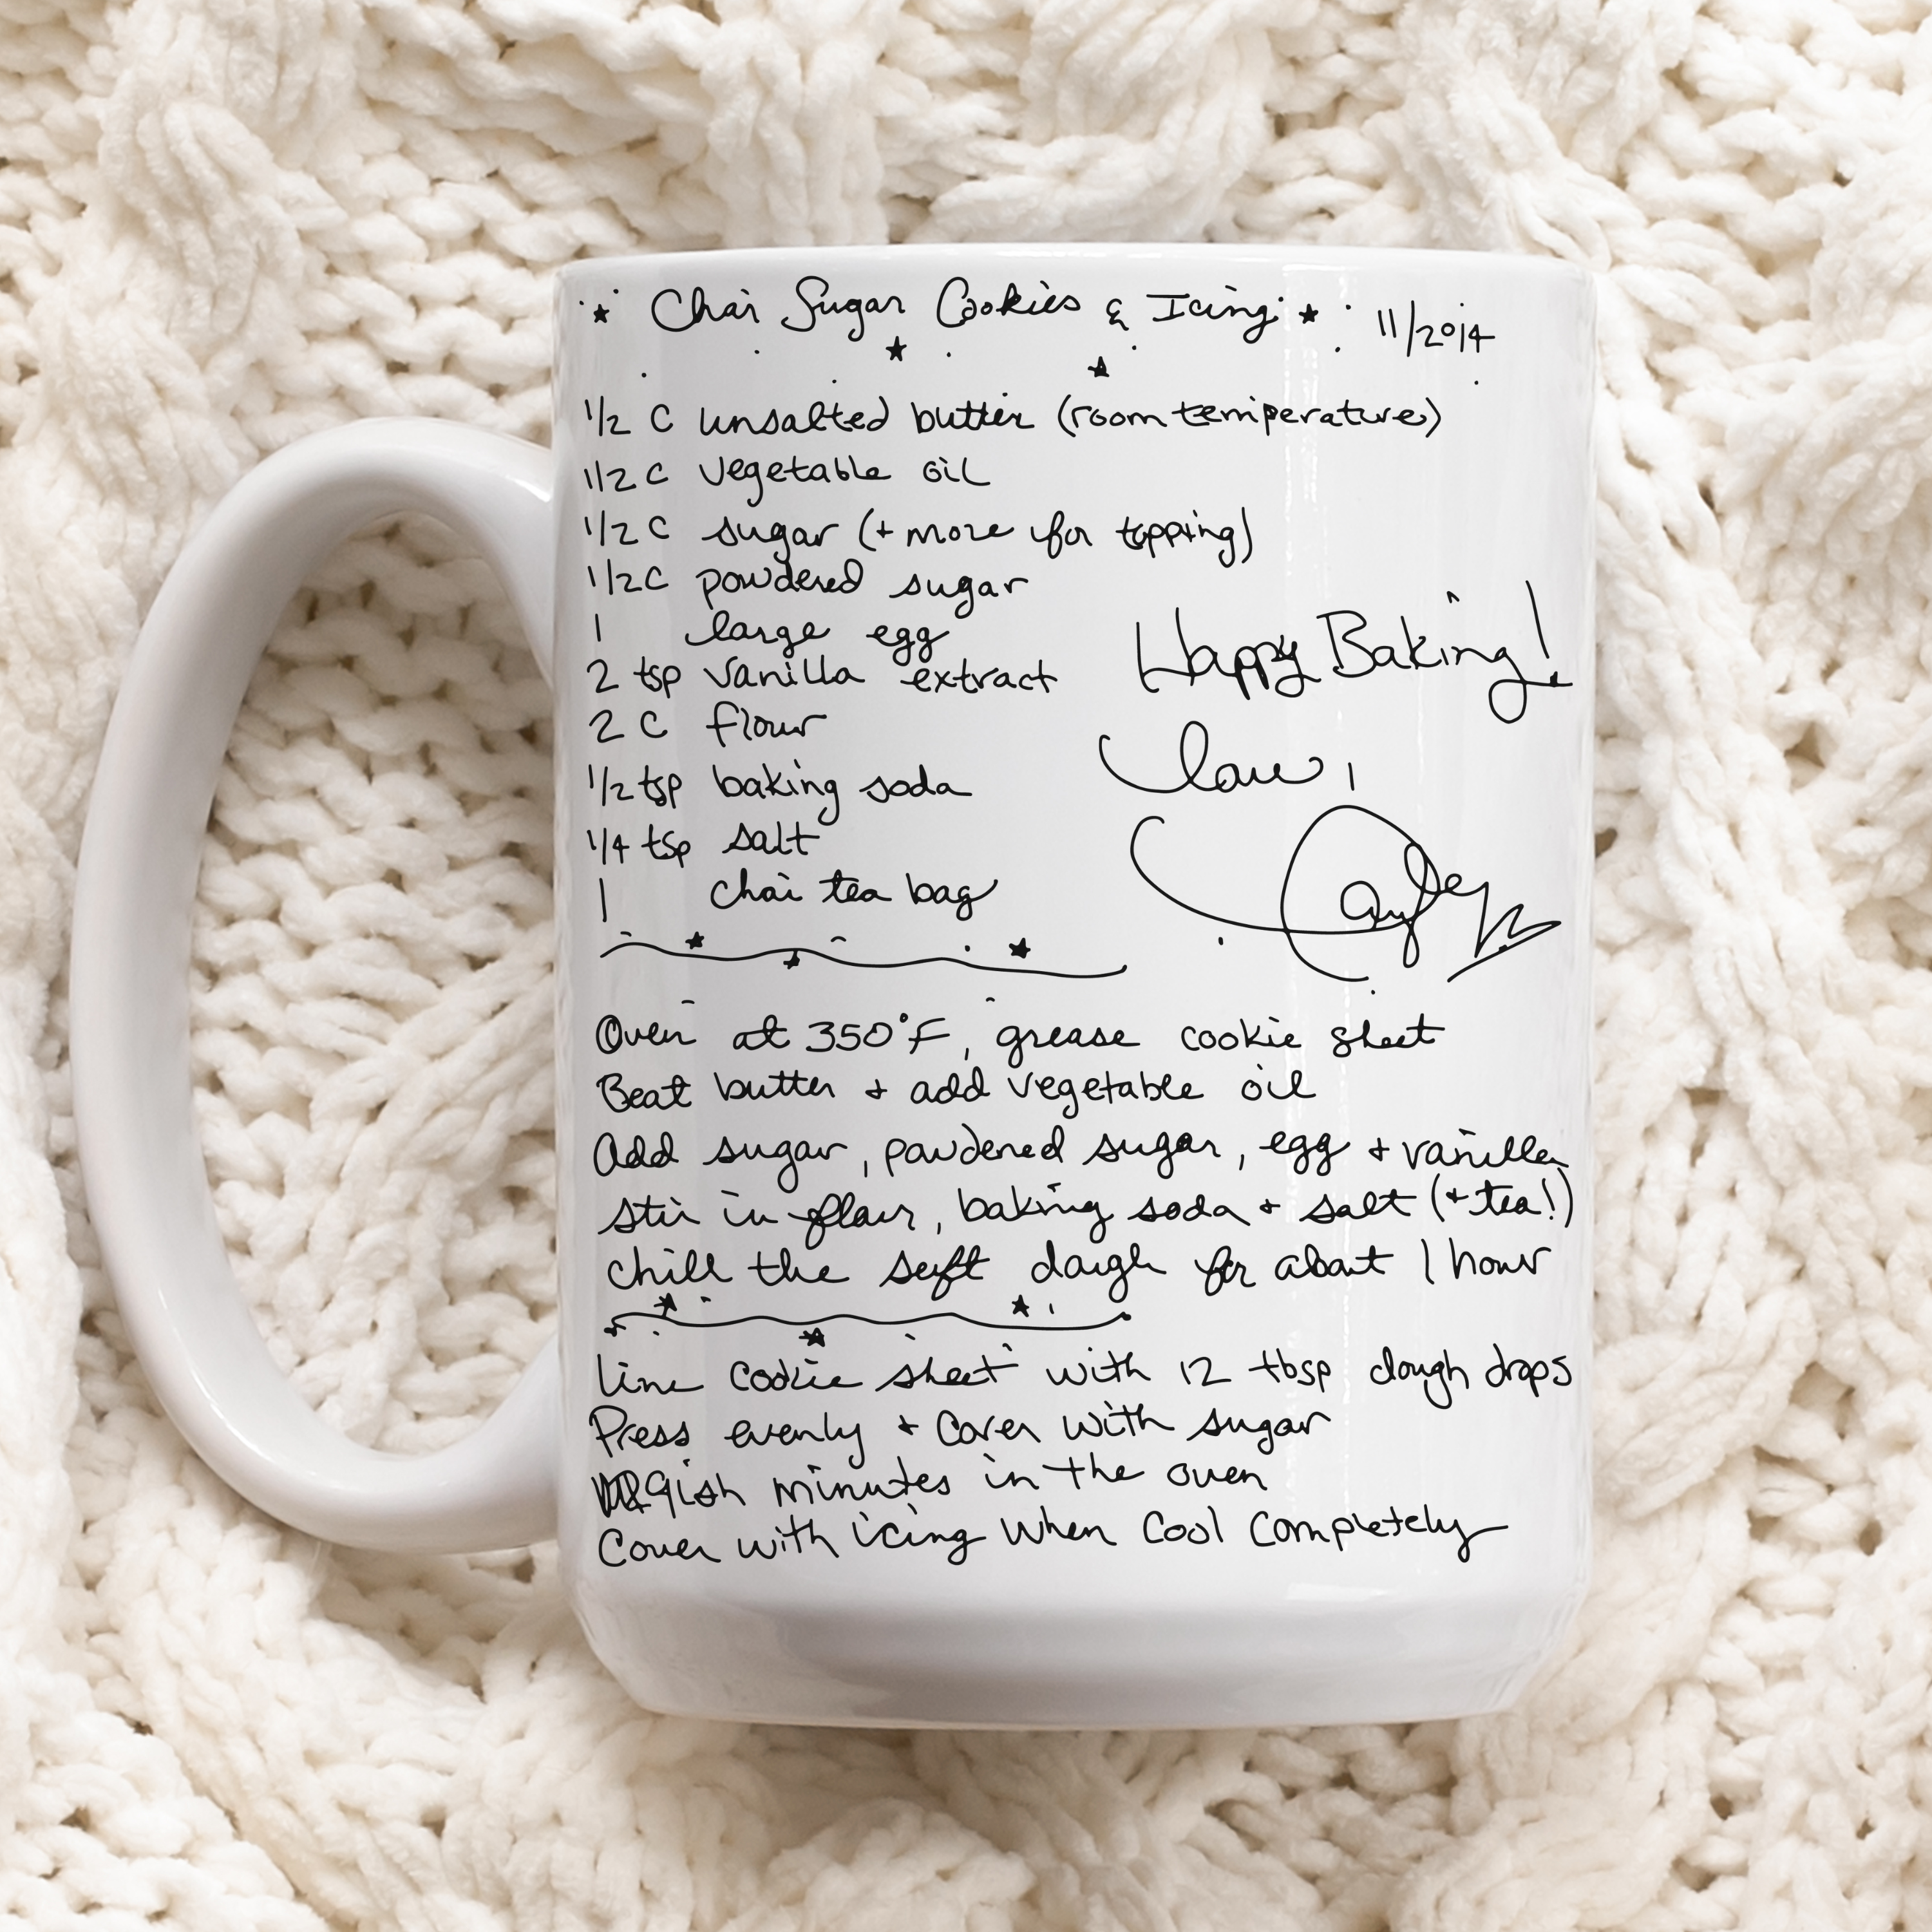 Chai Sugar Cookies & Icing 11/2014
1/2 C unsalted butter (room temperature)
1/2 C vegetable oil
1/2 C sugar (+ more for topping)
1/2 C powdered sugar
1 large egg
2 tsp vanilla extract
2 C flour
1/2 tsp baking soda
1/4 tsp salt
1 chai tea bag
Happy Baking!
Love,
Oven at 350°F, grease cookie sheet
Beat butter + add vegetable oil
Add sugar, powdered sugar, egg + vanilla
stir in flour, baking soda + salt (+ tea!)
chill the soft dough for about 1 hour
Line cookie sheet with 12 tbsp dough drops
Press evenly + cover with sugar
9ish minutes in the oven
Cover with icing when cool completely